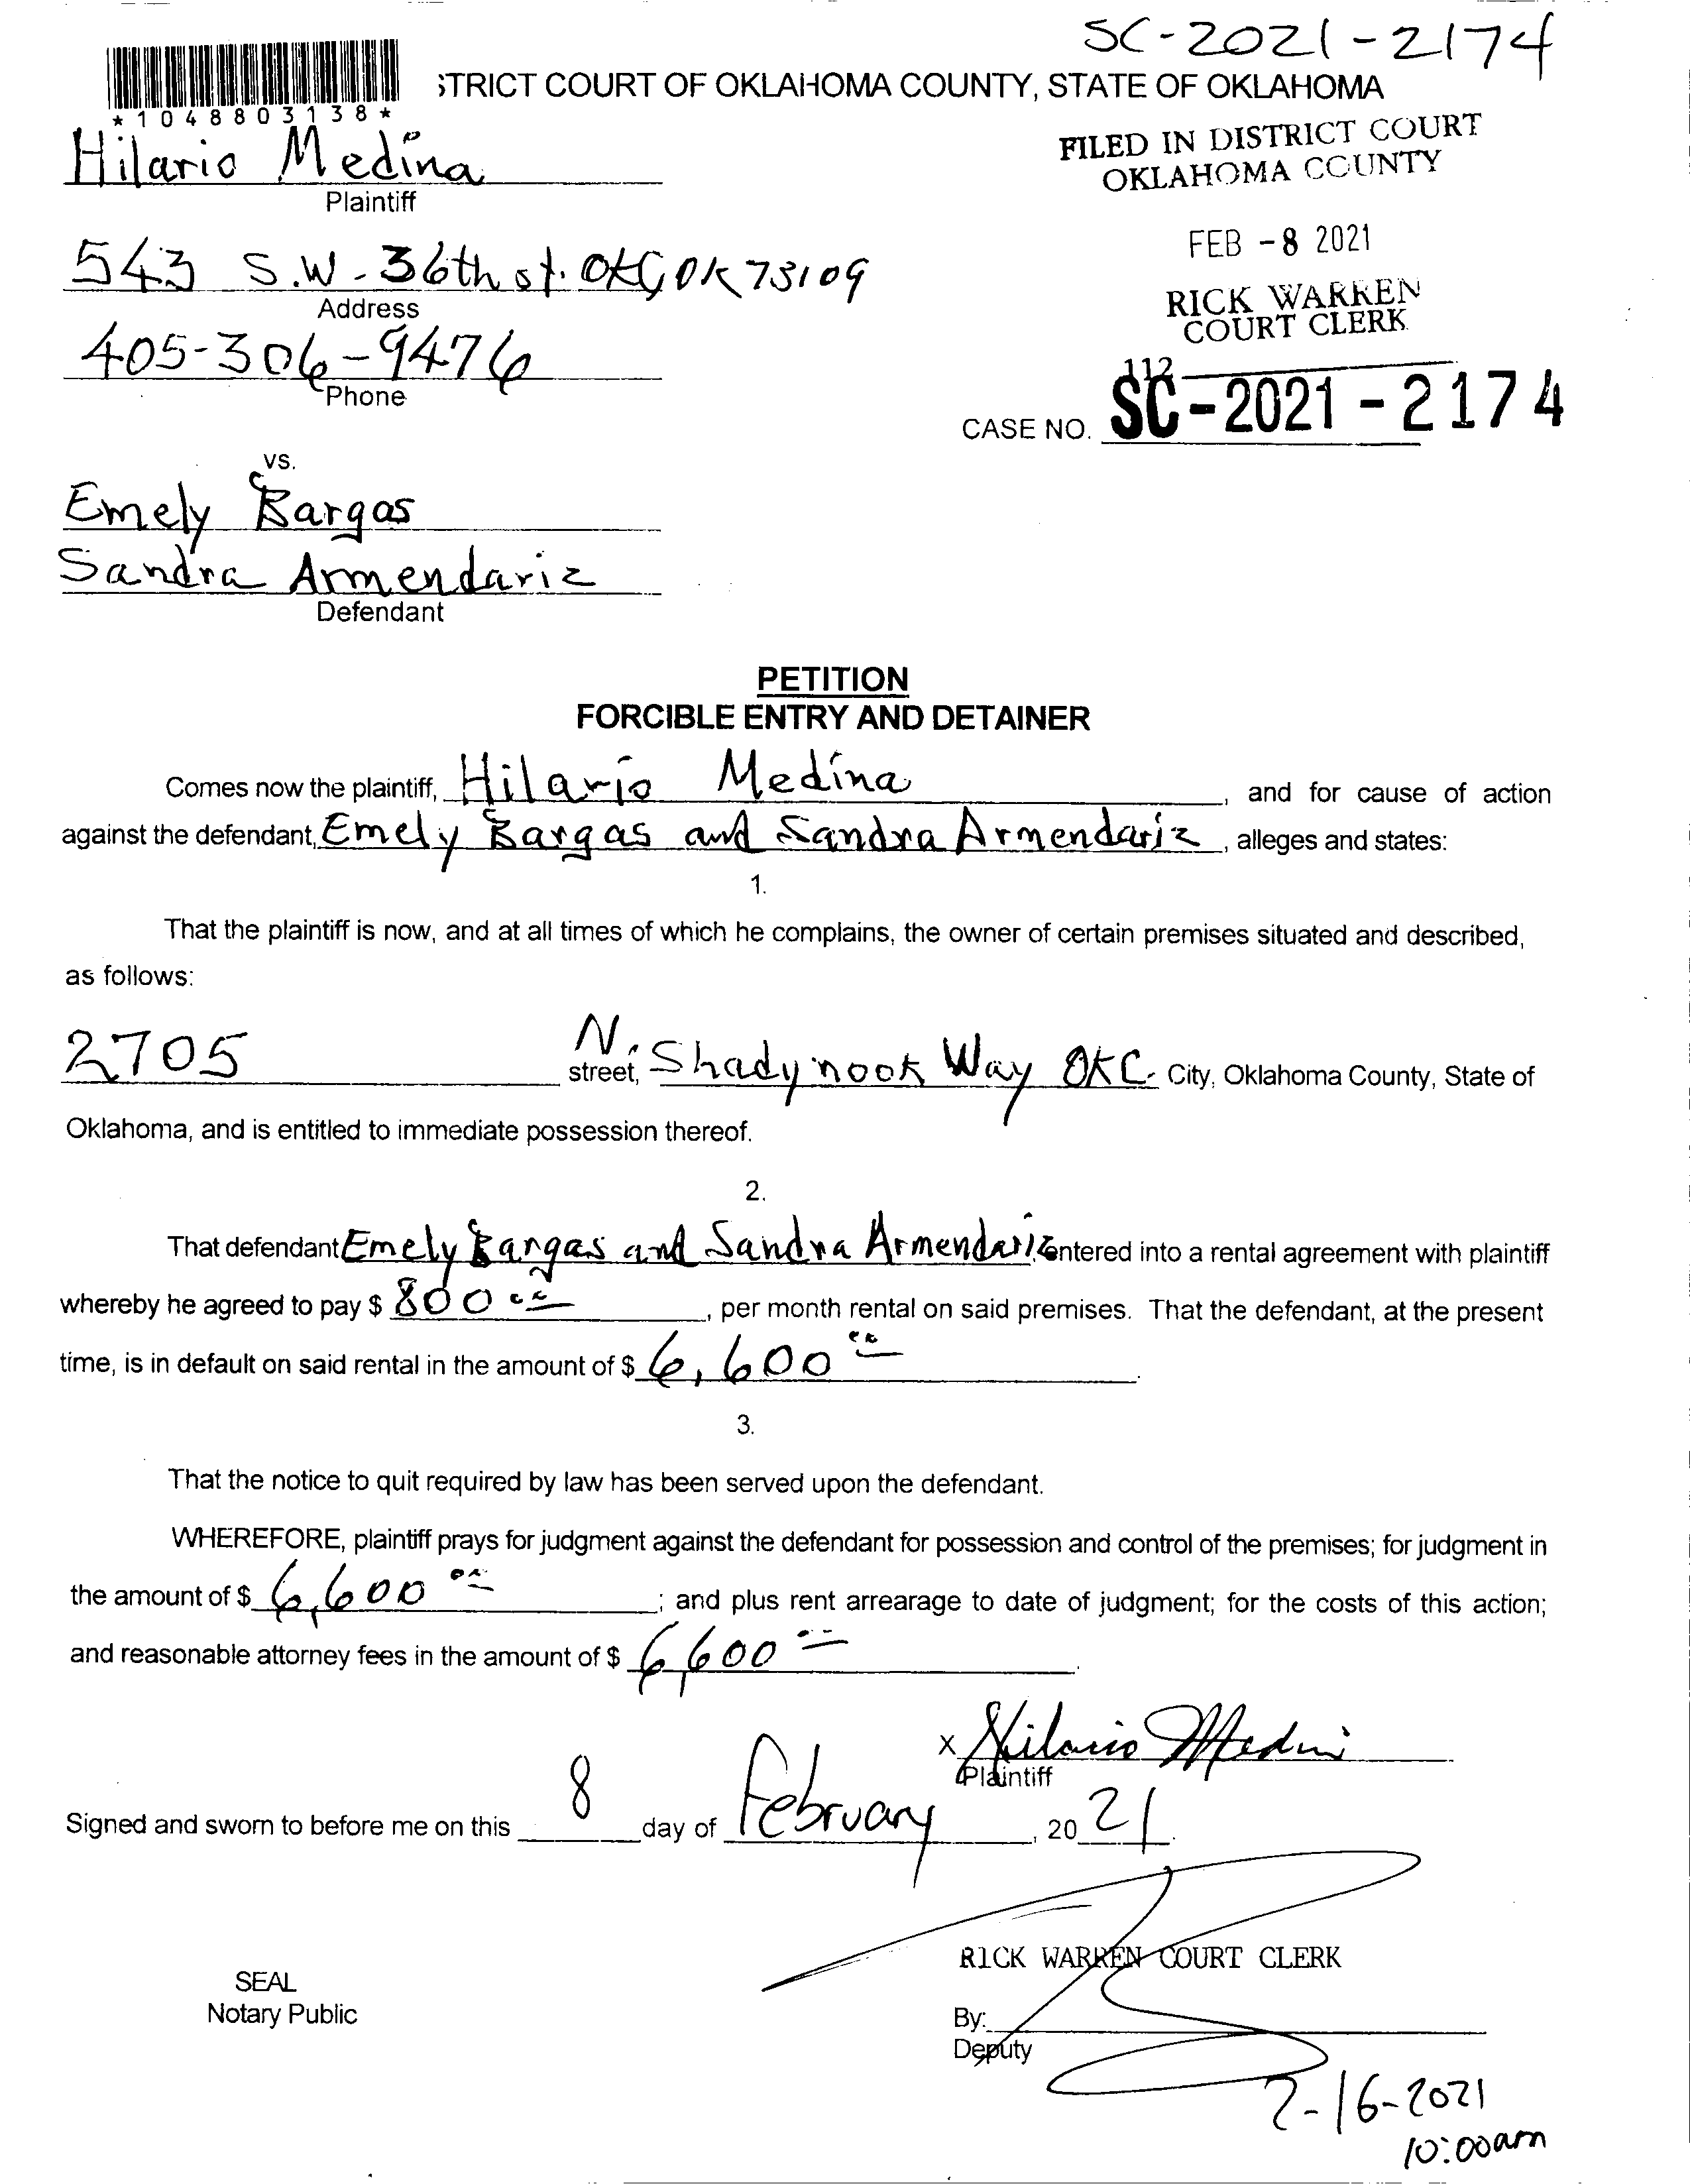 SC-2021-2174
STRICT COURT OF OKLAHOMA COUNTY, STATE OF OKLAHOMA
*1048803138*
FILED IN DISTRICT COURT
OKLAHOMA COUNTY
Hilario Medina
Plaintiff
FEB -8 2021
543 S.W. 36th st. OKC, OK 73109
Address
RICK WARREN
COURT CLERK
405-306-9476
Phone
112
CASE NO. SC-2021-2174
vs.
Emely Bargas
Sandra Armendariz
Defendant
PETITION
FORCIBLE ENTRY AND DETAINER
Comes now the plaintiff, Hilario Medina, and for cause of action
against the defendant, Emely Bargas and Sandra Armendariz, alleges and states:
1.
That the plaintiff is now, and at all times of which he complains, the owner of certain premises situated and described,
as follows:
2705 N. street, Shadynook Way OKC. City, Oklahoma County, State of
Oklahoma, and is entitled to immediate possession thereof.
2.
That defendant Emely Bargas and Sandra Armendariz entered into a rental agreement with plaintiff
whereby he agreed to pay $ 800 00, per month rental on said premises. That the defendant, at the present
time, is in default on said rental in the amount of $ 6,600 00.
3.
That the notice to quit required by law has been served upon the defendant.
WHEREFORE, plaintiff prays for judgment against the defendant for possession and control of the premises; for judgment in
the amount of $ 6,600 00; and plus rent arrearage to date of judgment; for the costs of this action;
and reasonable attorney fees in the amount of $ 6,600 00.
x Hilario Medina
Plaintiff
Signed and sworn to before me on this 8 day of February, 2021.
RICK WARREN COURT CLERK
SEAL
Notary Public
By:
Deputy
2-16-2021
10:00am